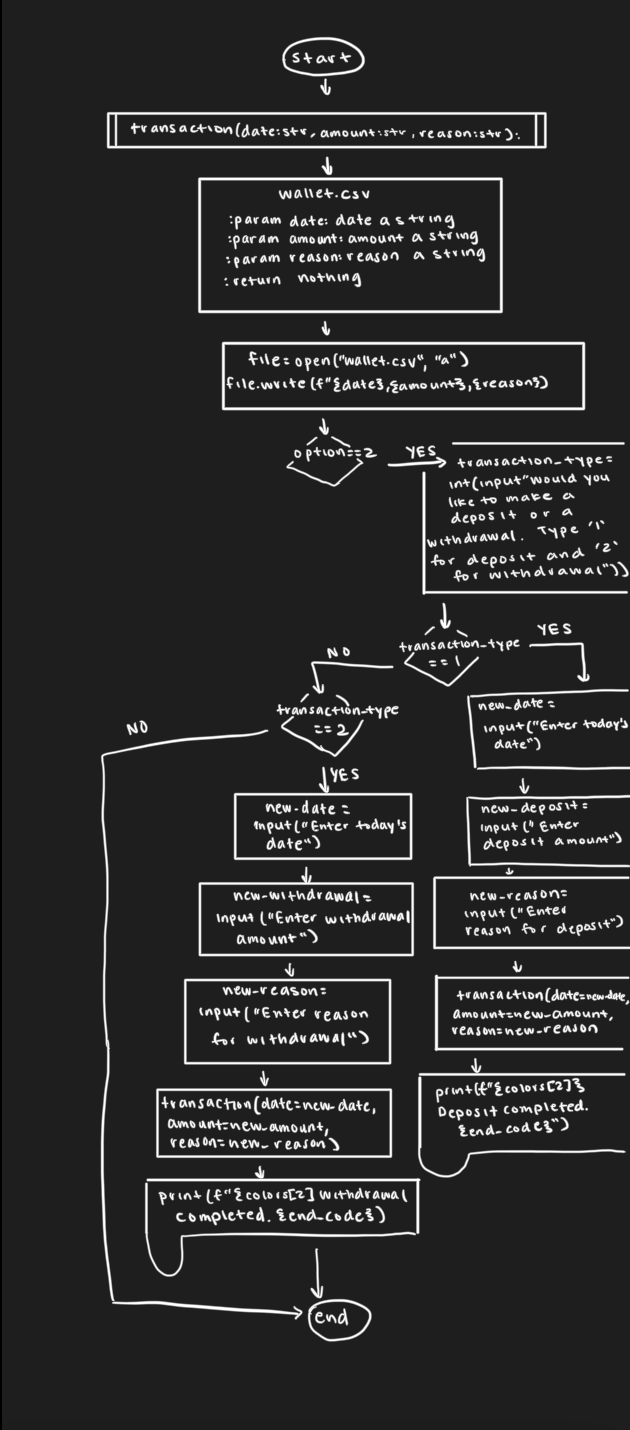 start
transaction(date:str, amount:str, reason:str):
wallet.csv
:param date: date a string
:param amount: amount a string
:param reason: reason a string
:return nothing
file=open("wallet.csv", "a")
file.write(f"{date},{amount},{reason})
option==2
YES
transaction_type=
int(input"would you
like to make a
deposit or a
withdrawal. Type '1'
for deposit and '2'
for withdrawal"))
transaction_type
==1
YES
NO
transaction_type
==2
NO
YES
new_date=
input("Enter today's
date")
new_deposit=
input(" Enter
deposit amount")
new-reason=
input("Enter
reason for deposit")
transaction(date=new-date,
amount=new_amount,
reason=new_reason
print(f"{colors[2]}
Deposit completed.
{end_code}")
new-date=
input("Enter today's
date")
new-withdrawal=
input("Enter withdrawal
amount")
new-reason=
input("Enter reason
for withdrawal")
transaction(date=new_date,
amount=new_amount,
reason=new_reason)
print(f"{colors[2] withdrawal
completed. {end_code})
end